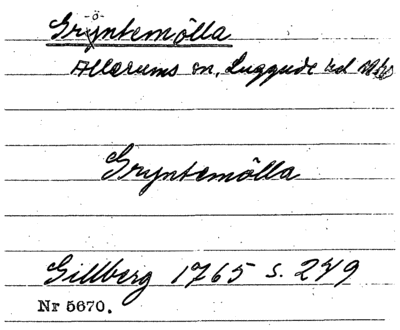 -ö-
Gryntemölla
Allerums sn, Luggude hd
Gryntemölla
Gillberg 1765 s. 279
Nr 5670.